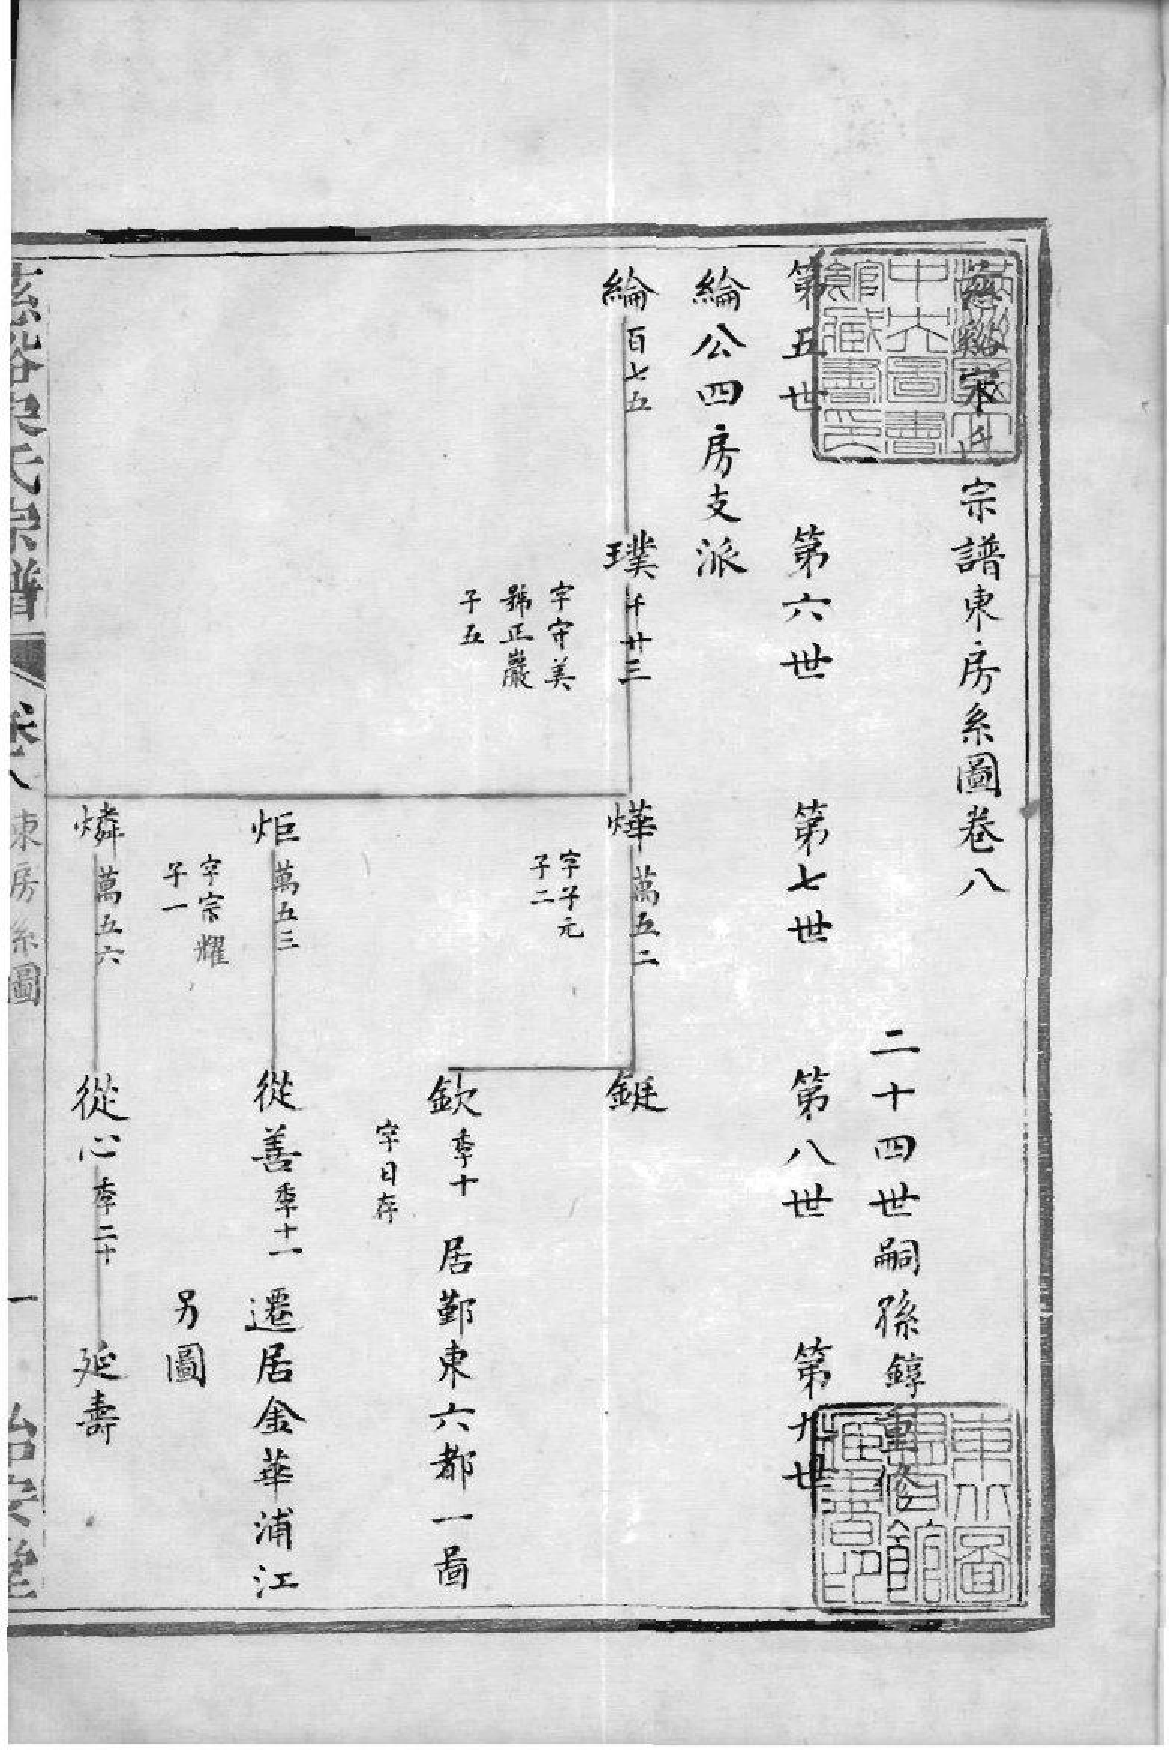 宗譜東房系圖卷八
二十四世嗣孫錞重修
第五世 第六世 第七世 第八世 第九世
綸公四房支派
綸 百七五
璞 千廿三
字守美
號正巖
子五
燁 萬五二
字子元
子二
鋌
欽 季十 居鄞東六都一啚
字日存
炬 萬五三
從善 季十一 遷居金華浦江
字宗耀
子一
另圖
燐 萬五六
從心 季二十
延壽
氏宗譜 卷八 東房系圖 一